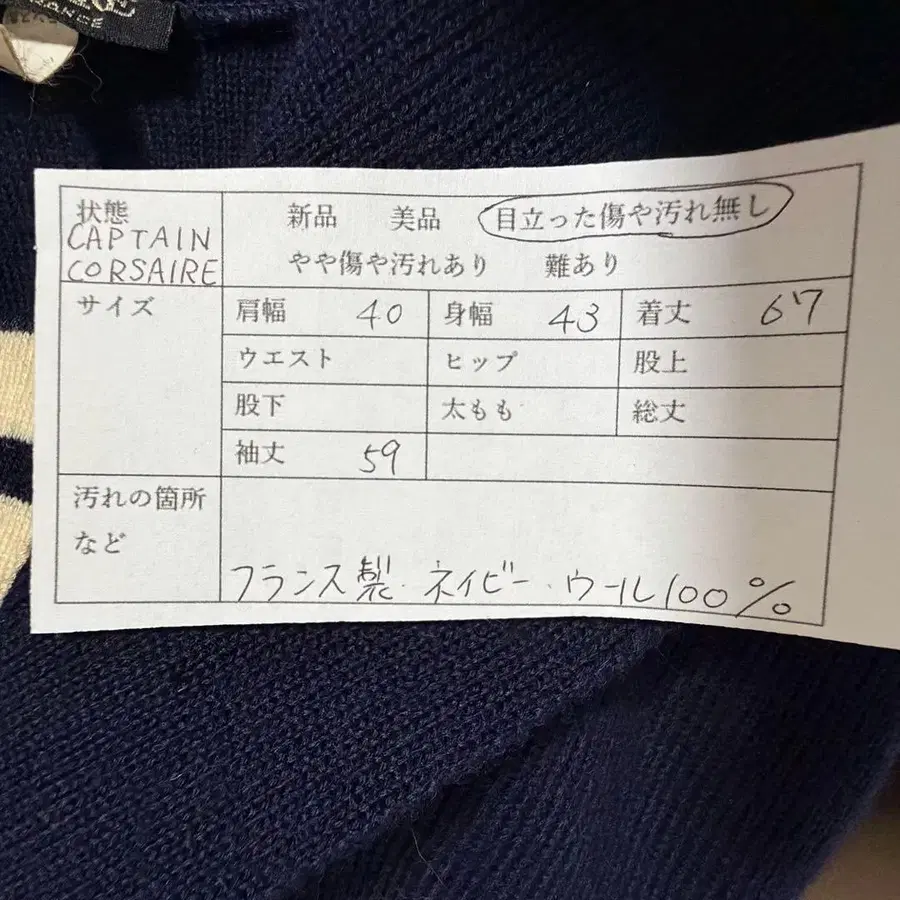 FRANCE
状態 新品 美品 目立った傷や汚れ無し
CAPTAIN
CORSAIRE やや傷や汚れあり 難あり
サイズ 肩幅 40 身幅 43 着丈 67
ウエスト ヒップ 股上
股下 太もも 総丈
袖丈 59
汚れの箇所
など
フランス製・ネイビー・ウール100%